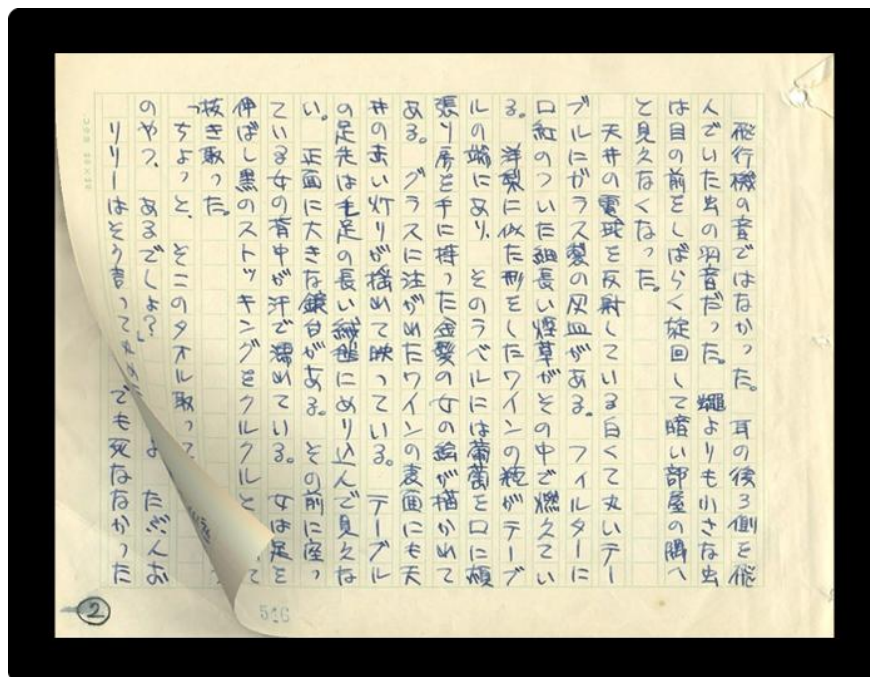 飛行機の音ではなかった。耳の後ろ側を飛
んでいた虫の羽音だった。蠅よりも小さな虫
は目の前をしばらく旋回して暗い部屋の隅へ
と見えなくなった。
天井の電球を反射している白くて丸いテー
ブルにガラス製の灰皿がある。フィルターに
口紅のついた細長い煙草がその中で燃えてい
る。洋梨に似た形をしたワインの瓶がテーブ
ルの端にあり、そのラベルには葡萄を口に頬
張り房を手に持った金髪の女の絵が描かれて
ある。グラスに注がれたワインの表面にも天
井の赤い灯りが揺れて映っている。テーブル
の足先は毛足の長い絨毯にめり込んで見えな
い。正面に大きな鏡台がある。その前に座っ
ている女の背中が汗で濡れている。女は足を
伸ばし黒のストッキングをクルクルと て
抜き取った。
「ちょっと、そこのタオル取って
のやつ、あるでしょ?」 よ たぶんお
リリーはそう言って丸め でも死ななかった
546
②